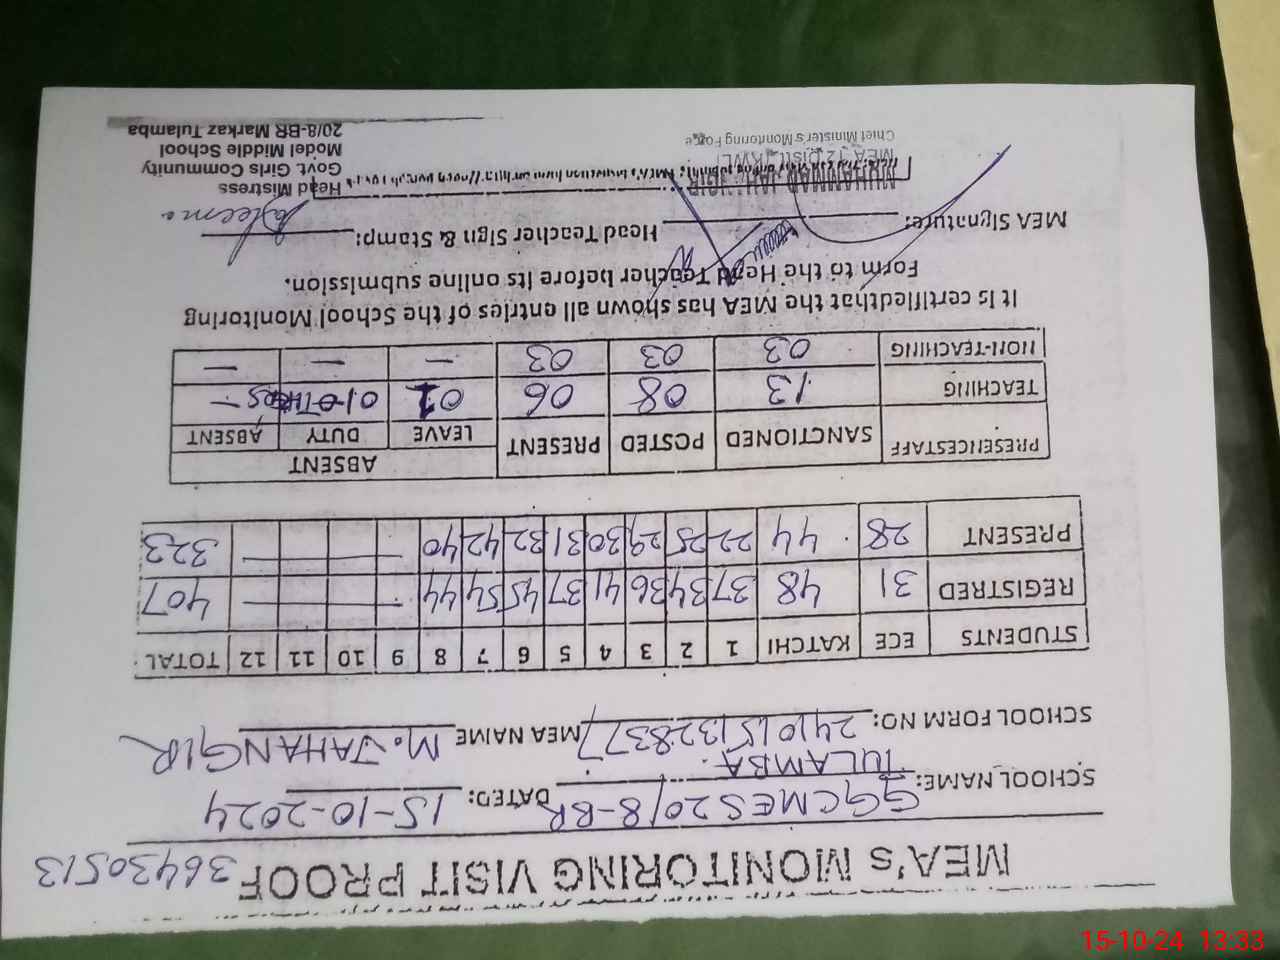 MEA's MONITORING VISIT PROOF 36430513
SCHOOL NAME: GGCMES 20/8-BR DATED: 15-10-2024
TULAMBA.
SCHOOL FORM NO: 241015132837 MEA NAME M. JAHANGIR
STUDENTS ECE KATCHI 1 2 3 4 5 6 7 8 9 10 11 12 TOTAL
REGISTRED 31 48 37 34 36 41 37 45 54 44 — — — — 407
PRESENT 28 44 22 25 29 30 31 32 42 40 — — — — 323
PRESENCESTAFF SANCTIONED POSTED PRESENT ABSENT
LEAVE DUTY ABSENT
TEACHING 13 08 06 01 01 OTHERS —
NON-TEACHING 03 03 03 — — —
It is certifiedthat the MEA has shown all entries of the School Monitoring
Form to the Head Teacher before its online submission.
MEA Signature: Head Teacher Sign & Stamp:
MUHAMMAD JAHANGIR
MEA 12 Distt. KWL
Chief Minister's Monitoring Force
Head Mistress
Govt. Girls Community
Model Middle School
20/8-BR Markaz Tulamba
15-10-24 13:33